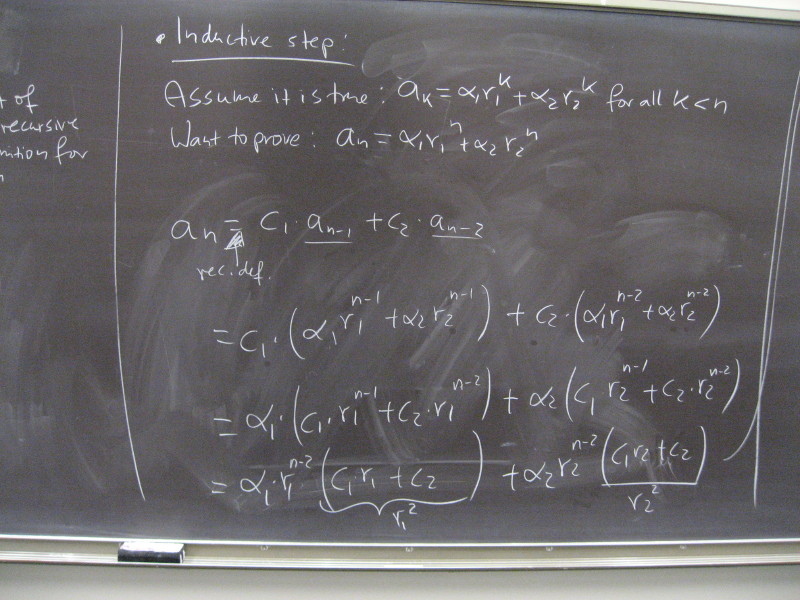 of
recursive
for
• Inductive step:
Assume it is true: aₖ = α₁r₁ᵏ + α₂r₂ᵏ for all k < n
Want to prove: aₙ = α₁r₁ⁿ + α₂r₂ⁿ
aₙ = c₁ · aₙ₋₁ + c₂ · aₙ₋₂
rec. def.
= c₁ · (α₁r₁ⁿ⁻¹ + α₂r₂ⁿ⁻¹) + c₂ · (α₁r₁ⁿ⁻² + α₂r₂ⁿ⁻²)
= α₁ · (c₁ · r₁ⁿ⁻¹ + c₂ · r₁ⁿ⁻²) + α₂ (c₁ r₂ⁿ⁻¹ + c₂ · r₂ⁿ⁻²)
= α₁ · r₁ⁿ⁻² (c₁ · r₁ + c₂) + α₂ r₂ⁿ⁻² (c₁r₂ + c₂)
r₁² r₂²